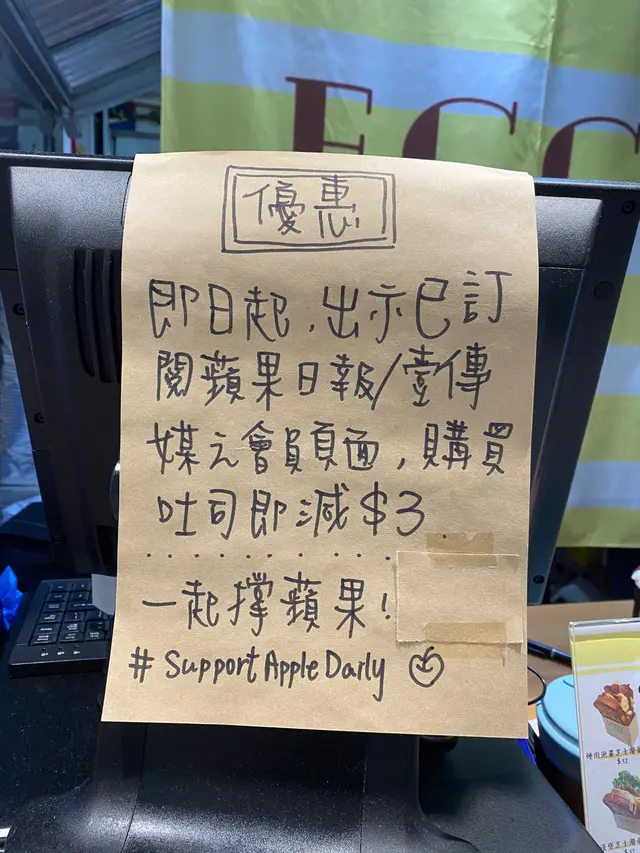 EGG
優惠
即日起，出示已訂
閱蘋果日報/壹傳
媒之會員頁面，購買
吐司即減$3
一起撐蘋果!
#SupportAppleDaily